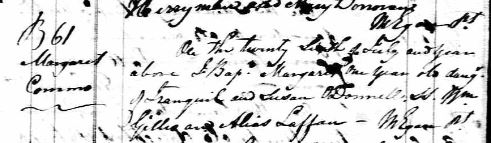 Merryman and Mary Donovan
M Egan Pt
B 61
Margaret
Commo
On the twenty Sixth of July and year
above I Bap. Margaret one year old daug.
of Tranquil and Susan O Donnell. Sp. Wm
Gillis and Alias Laffan — M Egan Pt